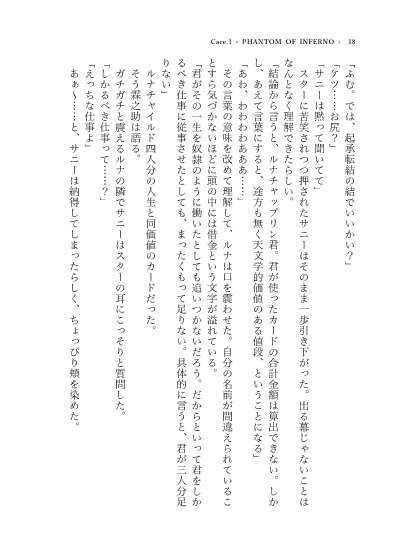 Case.1 - PHANTOM OF INFERNO - 18
「ふむ。では、起承転結の結でいいかい？」
「ケツ……お尻？」
「サニーは黙って聞いてて」
　スターに苦笑されつつ押されたサニーはそのまま一歩引き下がった。出る幕じゃないことは
なんとなく理解できたらしい。
「結論から言うと、ルナチャップリン君。君が使ったカードの合計金額は算出できない。しか
し、あえて言葉にすると、途方も無く天文学的価値のある値段、ということになる」
「あわ、わわわわあああ……」
　その言葉の意味を改めて理解して、ルナは口を震わせた。自分の名前が間違えられているこ
とすら気づかないほどに頭の中には借金という文字が溢れている。
「君がその一生を奴隷のように働いたとしても追いつかないだろう。だからといって君をしか
るべき仕事に従事させたとしても、まったくもって足りない。具体的に言うと、君が三人分足
りない」
　ルナチャイルド四人分の人生と同価値のカードだった。
　そう霖之助は語る。
　ガチガチと震えるルナの隣でサニーはスターの耳にこっそりと質問した。
「しかるべき仕事って……？」
「えっちな仕事よ」
　あぁ～……と、サニーは納得してしまったらしく、ちょっぴり頬を染めた。